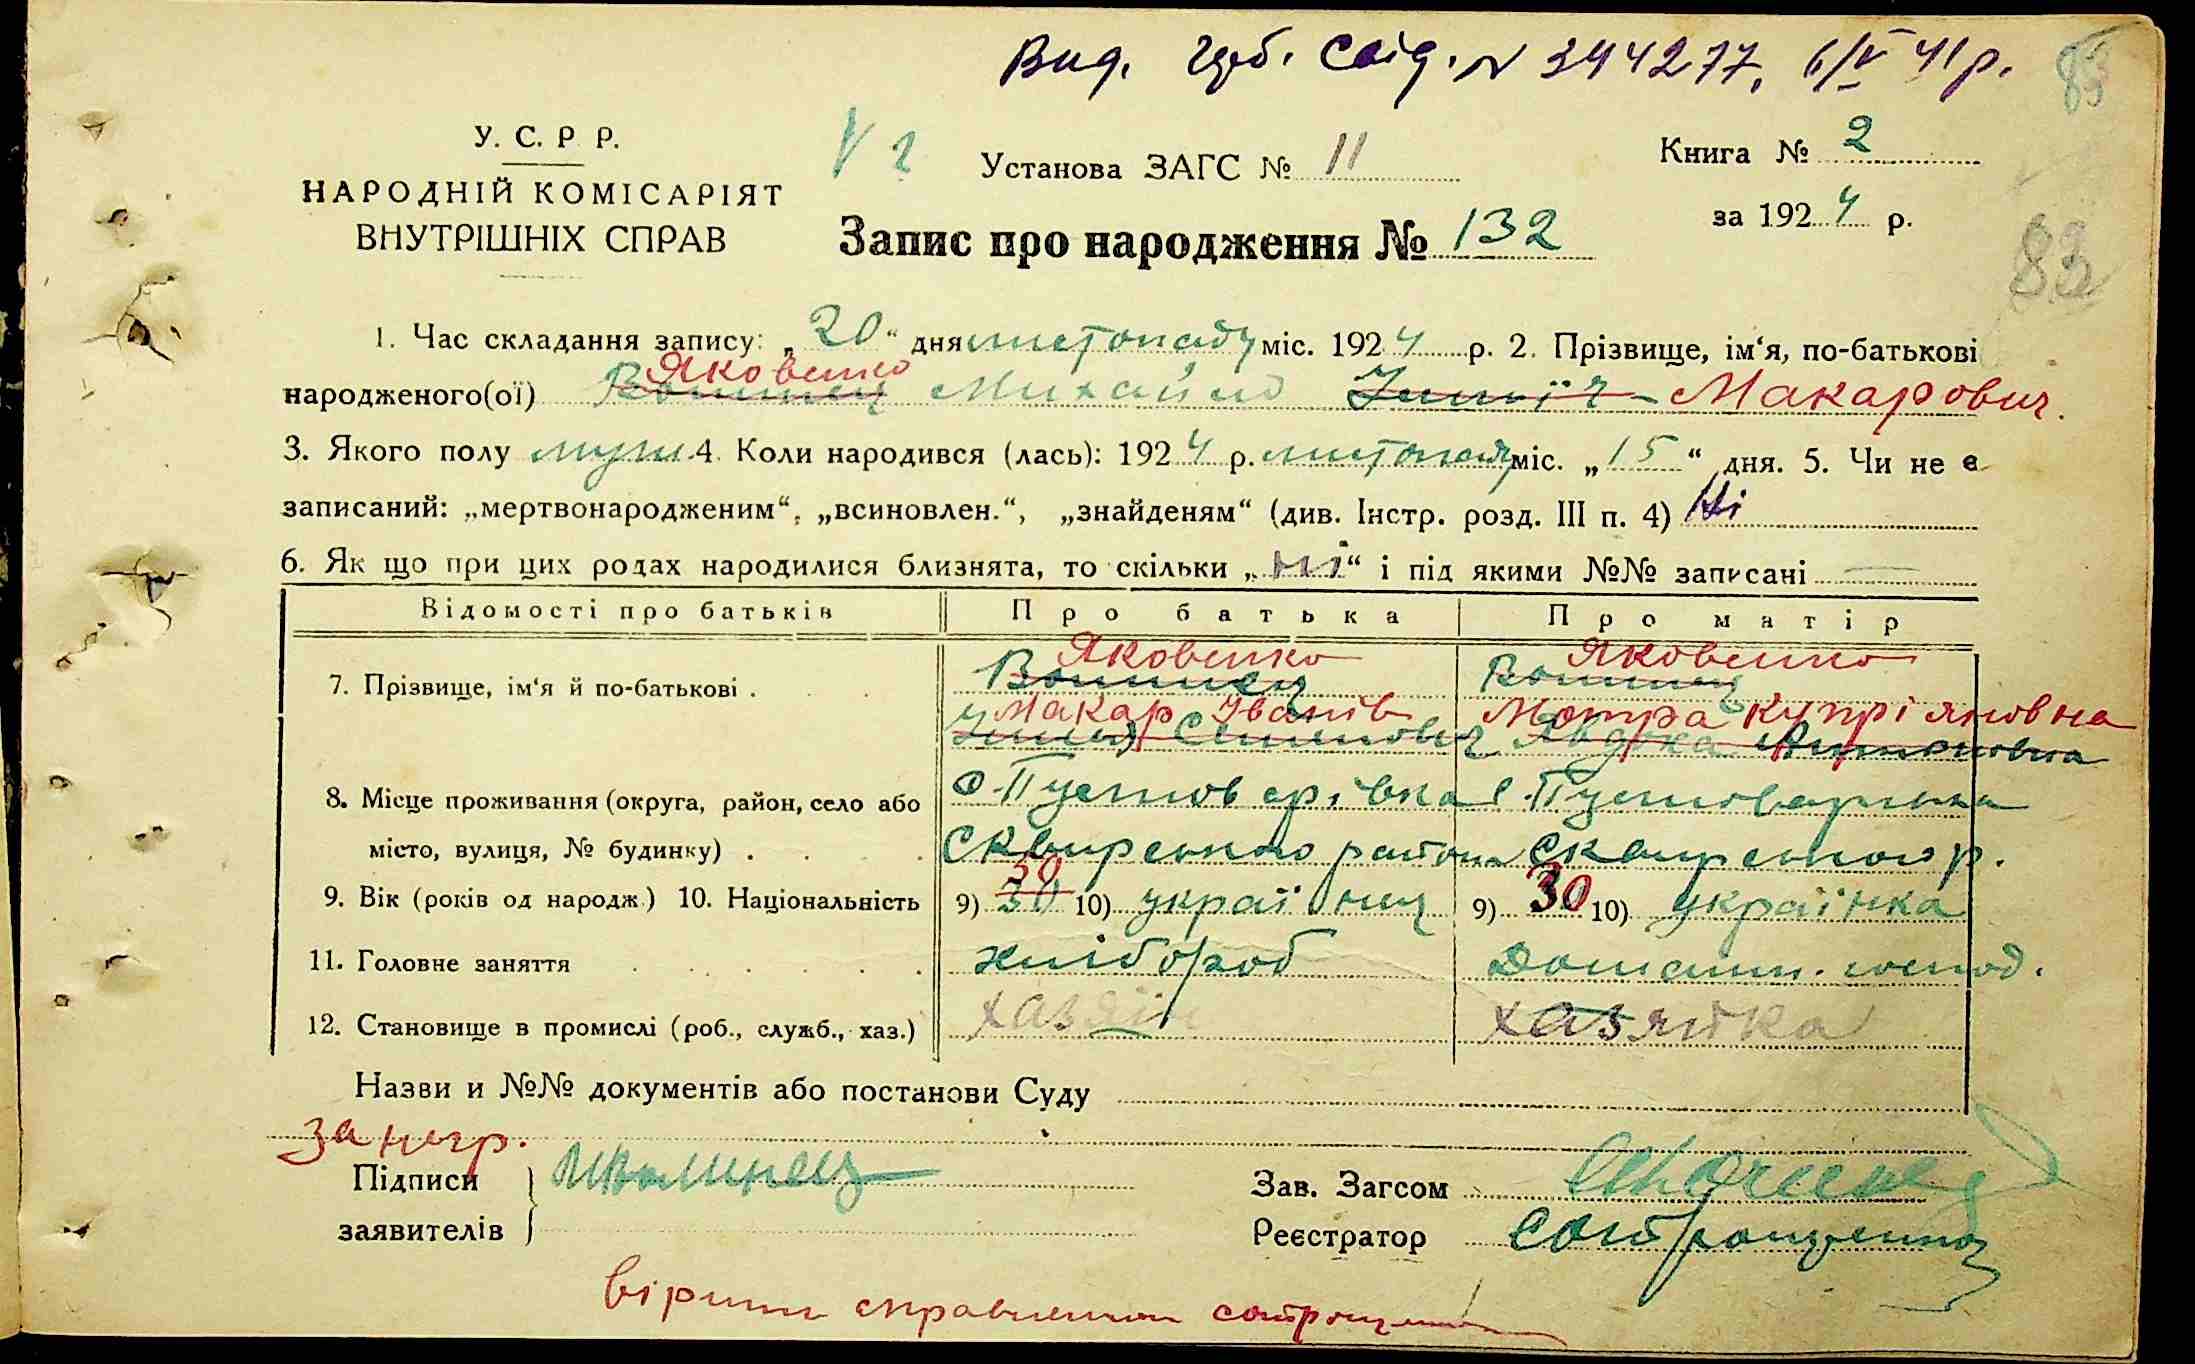 Вид. Свід. № 344277, 6/V 41 р.
83
У. С. Р Р.
Установа ЗАГС № 11
Книга № 2
НАРОДНІЙ КОМІСАРІЯТ
за 1924 р.
ВНУТРІШНІХ СПРАВ
Запис про народження № 132
83
1. Час складання запису: „20“ дня листопаду міс. 1924 р. 2. Прізвище, ім‘я, по-батькові
Яковенко
народженого(ої) Михайло Макарович.
3. Якого полу муж. 4. Коли народився (лась): 1924 р. листопаду міс. „15“ дня. 5. Чи не є
записаний: „мертвонародженим“, „всиновлен.“, „знайденям“ (див. Інстр. розд. III п. 4) Ні
6. Як що при цих родах народилися близнята, то скільки „ні“ і під якими №№ записані —
Відомості про батьків Про батька Про матір
Яковенко Яковенко
7. Прізвище, ім‘я й по-батькові . Волинец Волинец
Макар Іванів Мотра Купріяновна
Семенович Явдоха Антоновна
8. Місце проживання (округа, район, село або с. Пустоварівка с. Пустоварівка
місто, вулиця, № будинку) . Сквирського района Сквирського р.
30
9. Вік (років од народж.) 10. Національність 9) 30 10) українец 9) 30 10) українка
11. Головне заняття хлібороб Домашн. господ.
12. Становище в промислі (роб., служб., хаз.) хазяін хазяйка
Назви и №№ документів або постанови Суду
за негр.
Підписи Волинец Зав. Загсом
заявителів Реєстратор
вірити